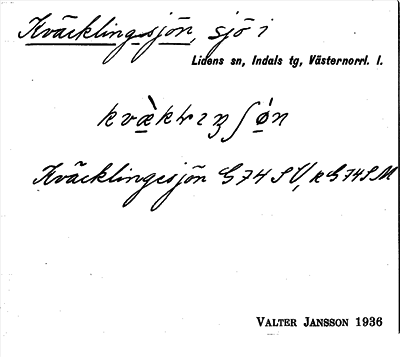 Kväcklingsjön, sjö i
Lidens sn, Indals tg, Västernorrl. l.
Kväcklingsjön G74SV, k G74SM
VALTER JANSSON 1936